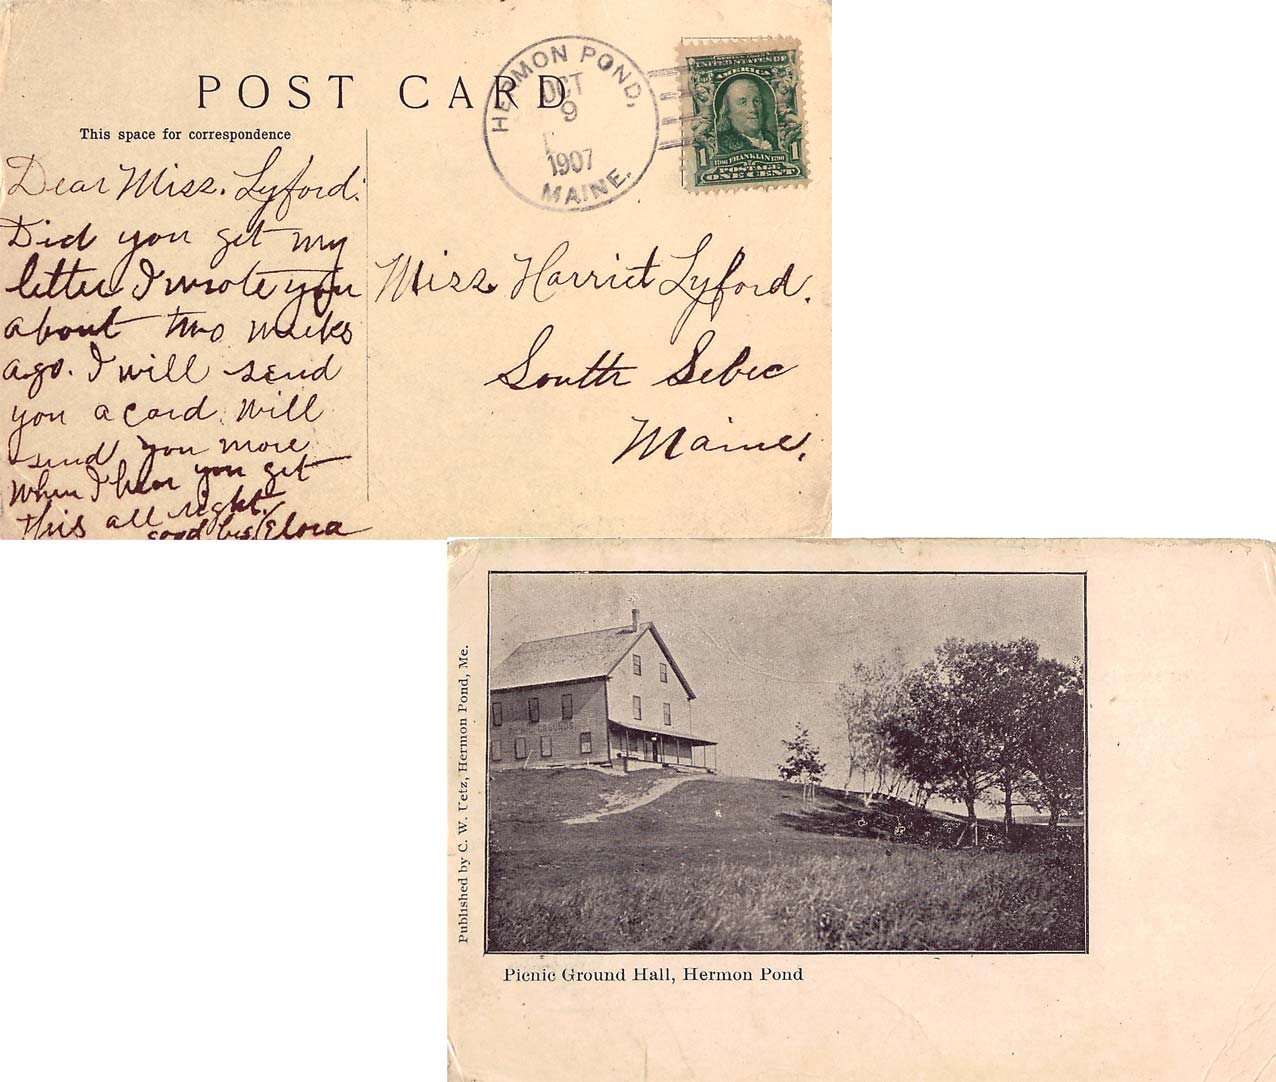 POST CARD
This space for correspondence
HERMON POND,
OCT
9
1907
MAINE.
UNITED STATES OF
AMERICA
1 1706 FRANKLIN 1790 1
POSTAGE
ONE CENT
Dear Miss. Lyford:
Did you get my
letter I wrote you
about two weeks
ago. I will send
you a card. Will
send you more
when I hear you get
this all right.
good bye Elora
Miss Harriet Lyford.
South Sebec
Maine.
PICNIC GROUNDS
Published by C. W. Uetz, Hermon Pond, Me.
Picnic Ground Hall, Hermon Pond